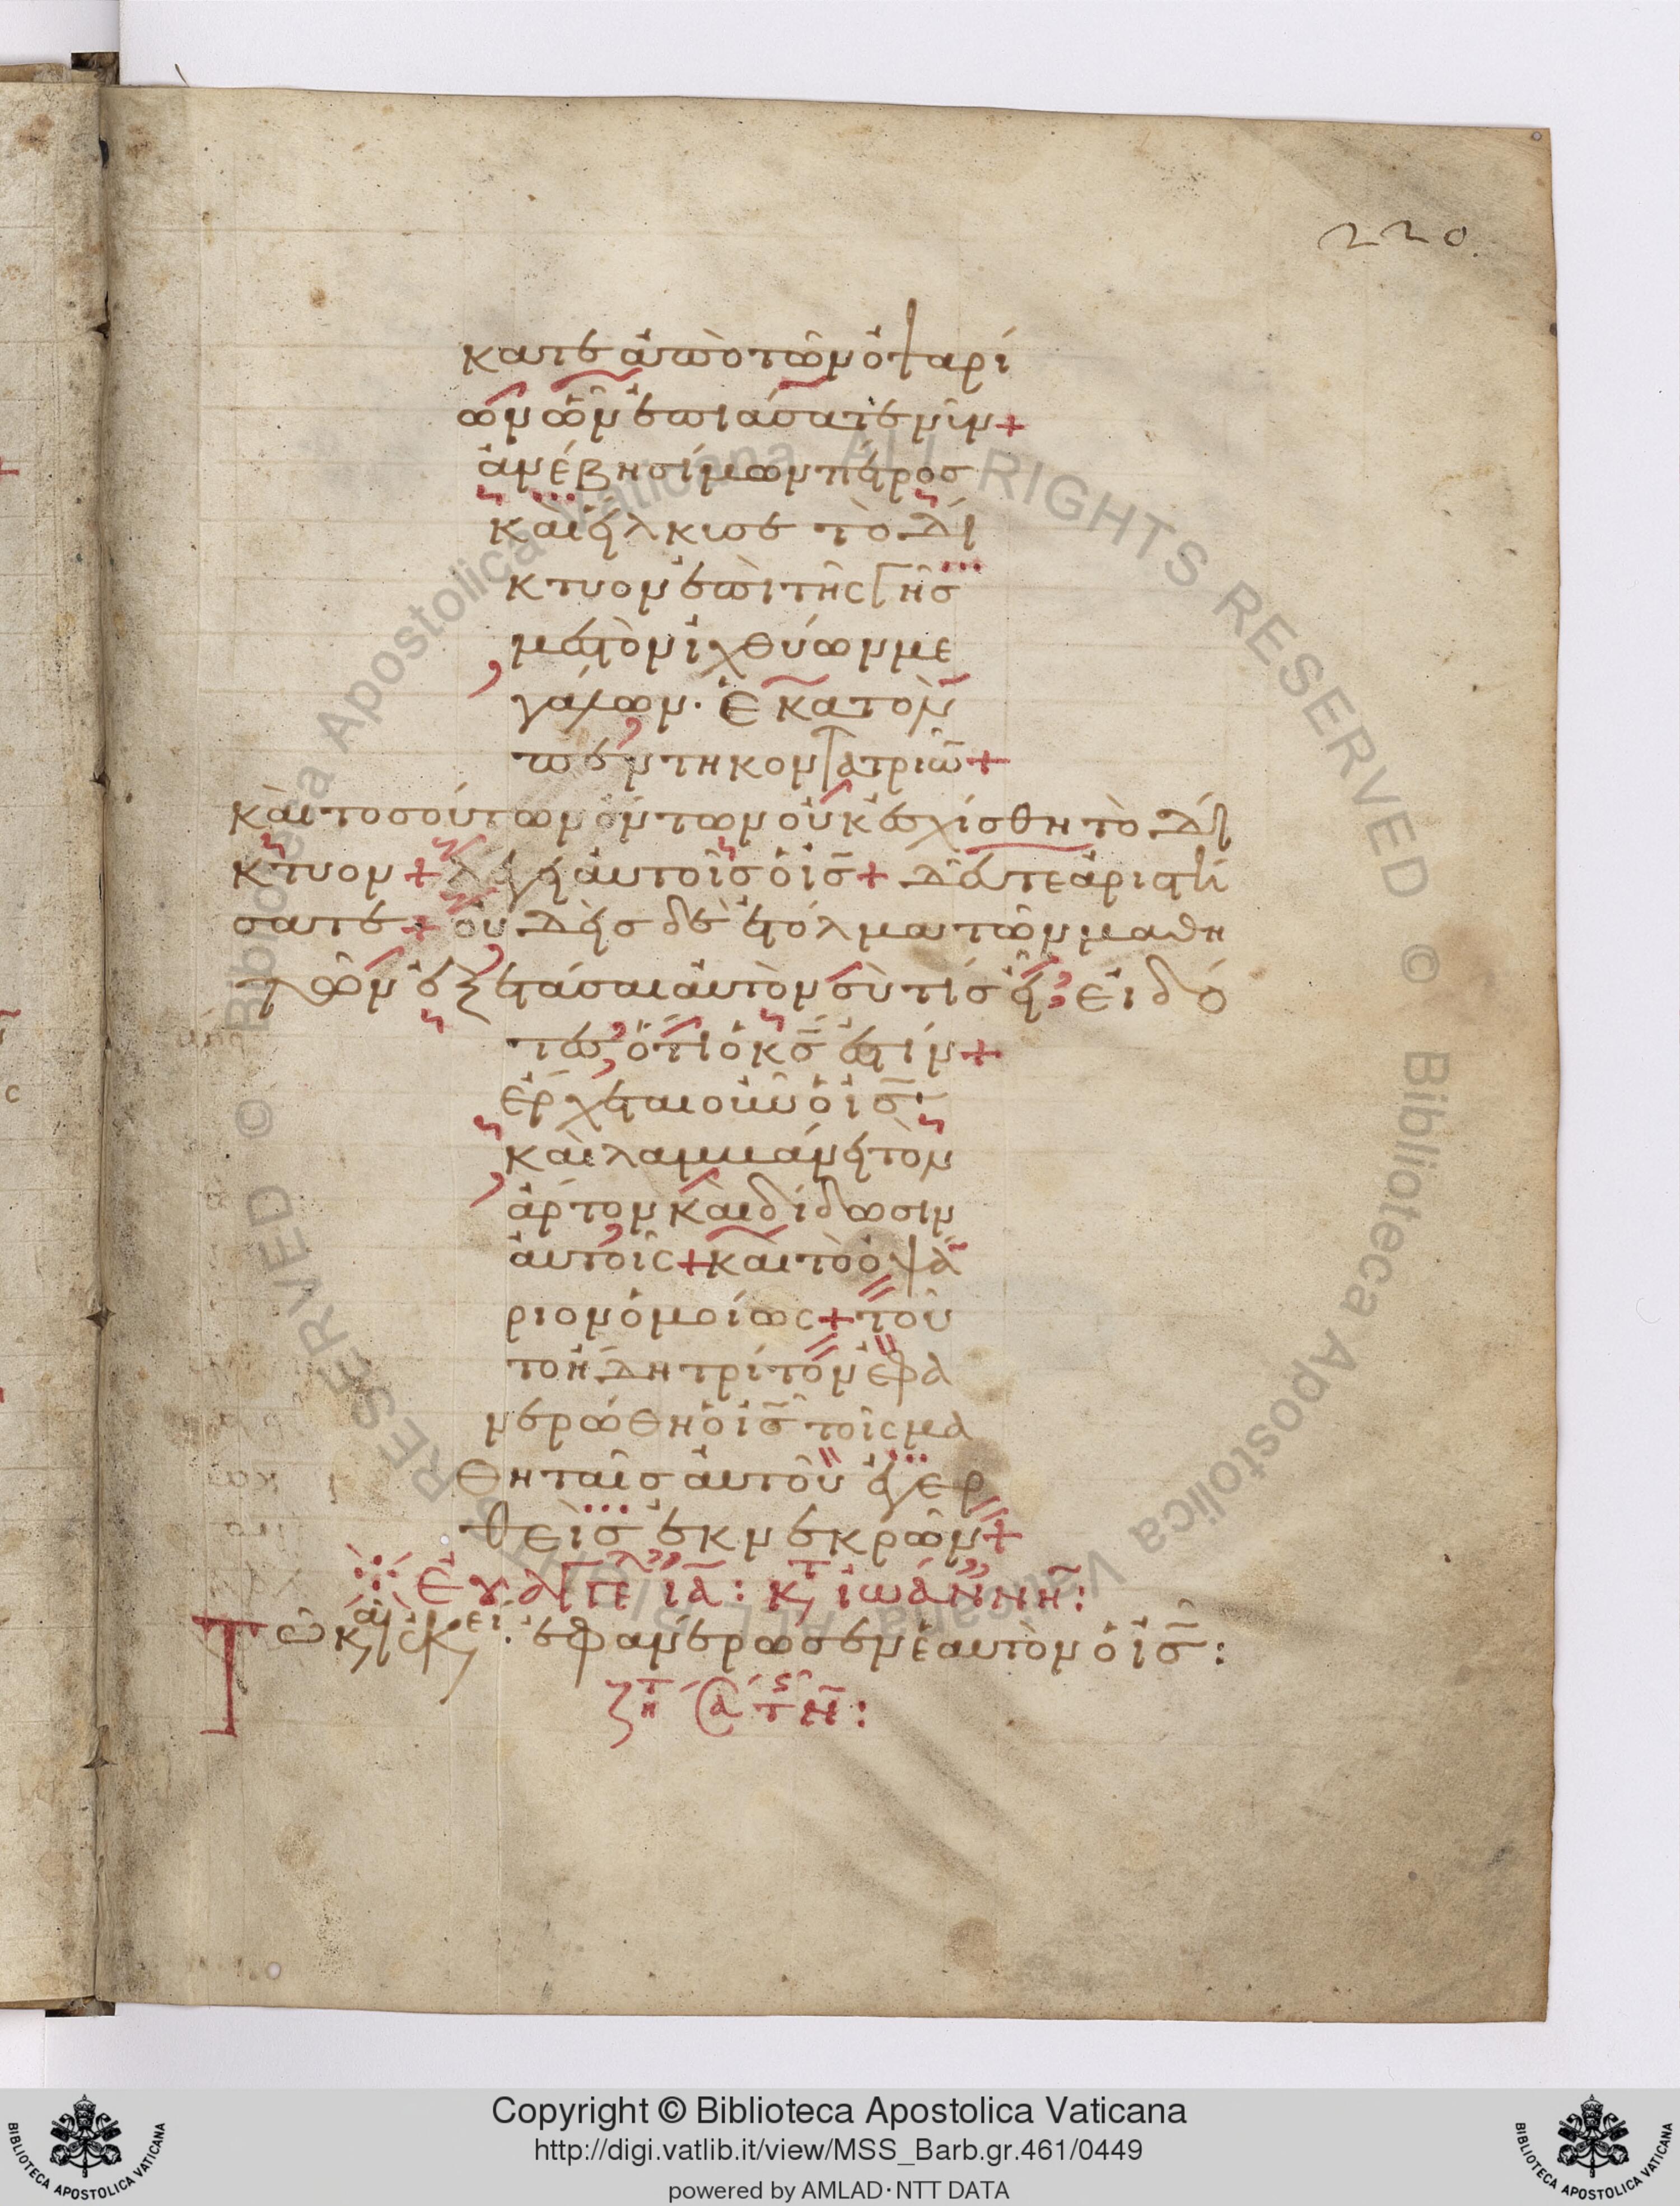 220.
κατε ἀπὸ τῶν ὀψαρί
ων ὧν ἐπιάσατε νῦν +
ἀνέβη σίμων πέτρος
καὶ εἵλκυσε τὸ δί
κτυον ἐπὶ τῆς γῆς
μεστὸν ἰχθύων με
γάλων · ἑκατὸν
πεντηκοντατριῶ̅ +
καὶ τοσούτων ὄντων οὐκ ἐσχίσθη τὸ δί
κτυον + λέγει αὐτοῖς ὁ ις̅ + δεῦτε ἀριστή
σατε + οὐδεὶς δὲ ἐτόλμα τῶν μαθη
τῶν ἐξετάσαι αὐτὸν σὺ τίς εἶ ; εἰδό
τες ὅτι ὁ κς̅ ἐστίν +
ἔρχεται οὖν ὁ ις̅ ·
καὶ λαμβάνει τὸν
ἄρτον καὶ δίδωσιν
αὐτοῖς + καὶ τὸ ὀψά
ριον ὁμοίως + τοῦ
το ἤδη τρίτον ἐφα
νερώθη ὁ ις̅ τοῖς μα
θηταῖς αὐτοῦ ἐγερ
θεὶς ἐκ νεκρῶν +
ἰα̅ : ἰωάννην̅ :
Τῶ κ ἐφανέρωσεν ἑαυτὸν ὁ ις̅ :
Copyright © Biblioteca Apostolica Vaticana
http://digi.vatlib.it/view/MSS_Barb.gr.461/0449
powered by AMLAD·NTT DATA
BIBLIOTECA APOSTOLICA VATICANA
BIBLIOTECA APOSTOLICA VATICANA
© Biblioteca Apostolica Vaticana ALL RIGHTS RESERVED © Biblioteca Apostolica Vaticana ALL RIGHTS RESERVED